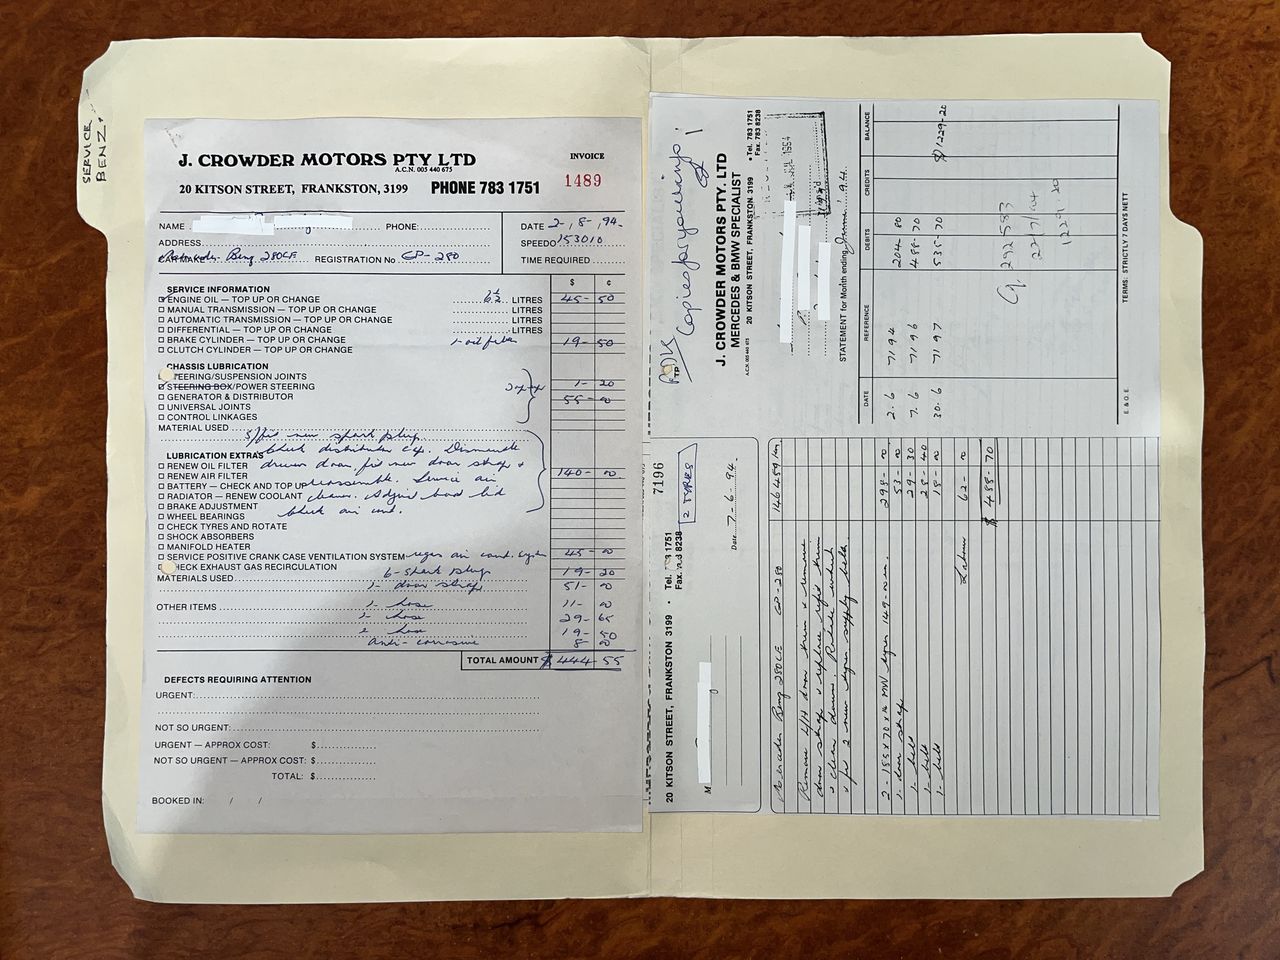 SERVICE
BENZ.
J. CROWDER MOTORS PTY LTD
A.C.N. 005 440 675
20 KITSON STREET, FRANKSTON, 3199 PHONE 783 1751
INVOICE
1489
NAME PHONE:
ADDRESS
CAR MAKE Mercedes Benz 280CE REGISTRATION No CP-280
DATE 2-,8-,94-
SPEEDO 153010
TIME REQUIRED
$ ¢
SERVICE INFORMATION
ENGINE OIL — TOP UP OR CHANGE LITRES 45-50
MANUAL TRANSMISSION — TOP UP OR CHANGE LITRES
AUTOMATIC TRANSMISSION — TOP UP OR CHANGE LITRES
DIFFERENTIAL — TOP UP OR CHANGE LITRES
BRAKE CYLINDER — TOP UP OR CHANGE 1- oil filter 19-50
CLUTCH CYLINDER — TOP UP OR CHANGE
CHASSIS LUBRICATION
STEERING/SUSPENSION JOINTS
STEERING BOX/POWER STEERING 1-20
GENERATOR & DISTRIBUTOR 55-00
UNIVERSAL JOINTS
CONTROL LINKAGES
MATERIAL USED
S/fit new spark plugs.
Check distributor cap. Dismantle
LUBRICATION EXTRAS
RENEW OIL FILTER drivers door, fit new door strap +
RENEW AIR FILTER 140-00
BATTERY — CHECK AND TOP UP reassemble. Service air
RADIATOR — RENEW COOLANT cleaner. Adjust boot lid
BRAKE ADJUSTMENT
WHEEL BEARINGS Check air cond.
CHECK TYRES AND ROTATE
SHOCK ABSORBERS
MANIFOLD HEATER
SERVICE POSITIVE CRANK CASE VENTILATION SYSTEM regas air cond. system 45-00
CHECK EXHAUST GAS RECIRCULATION
MATERIALS USED 6- spark plugs 19-20
1- door strap 51-00
OTHER ITEMS 1- hose 11-00
hose 29-65
hose 19-50
anti-corrosive 8-00
TOTAL AMOUNT $444-55
DEFECTS REQUIRING ATTENTION
URGENT:
NOT SO URGENT:
URGENT — APPROX COST: $
NOT SO URGENT — APPROX COST: $
TOTAL: $
BOOKED IN: / /
J. CROWDER MOTORS PTY. LTD
MERCEDES & BMW SPECIALIST
A.C.N. 005 440 675 20 KITSON STREET, FRANKSTON 3199 • Tel. 783 1751
Fax. 783 8238
STATEMENT for Month ending June 94.
DATE REFERENCE DEBITS CREDITS BALANCE
2.6 7194 204-80
7.6 7196 488-70
30.6 7197 535-70 $1229-20
292583
22/7/94
1229.20
E. & O. E. TERMS: STRICTLY 7 DAYS NETT
20 KITSON STREET, FRANKSTON 3199 • Tel.
7196
2 TYRES
M
Date 7-6-94.
Mercedes Benz 280CE CP-280 146489 km.
Remove R/H door trim + remove
door strap + replace refit trim
+ clean down. Rotate wheels
+ fit 2 new tyres supply belts.
2 - 185 x 70 x 14 MW tyres 149-00 ea. 298-00
1- door strap. 53-00
1- belt 29-30
1- belt 28-40
1- belt 18-00
Labour 62-00
$ 488-70